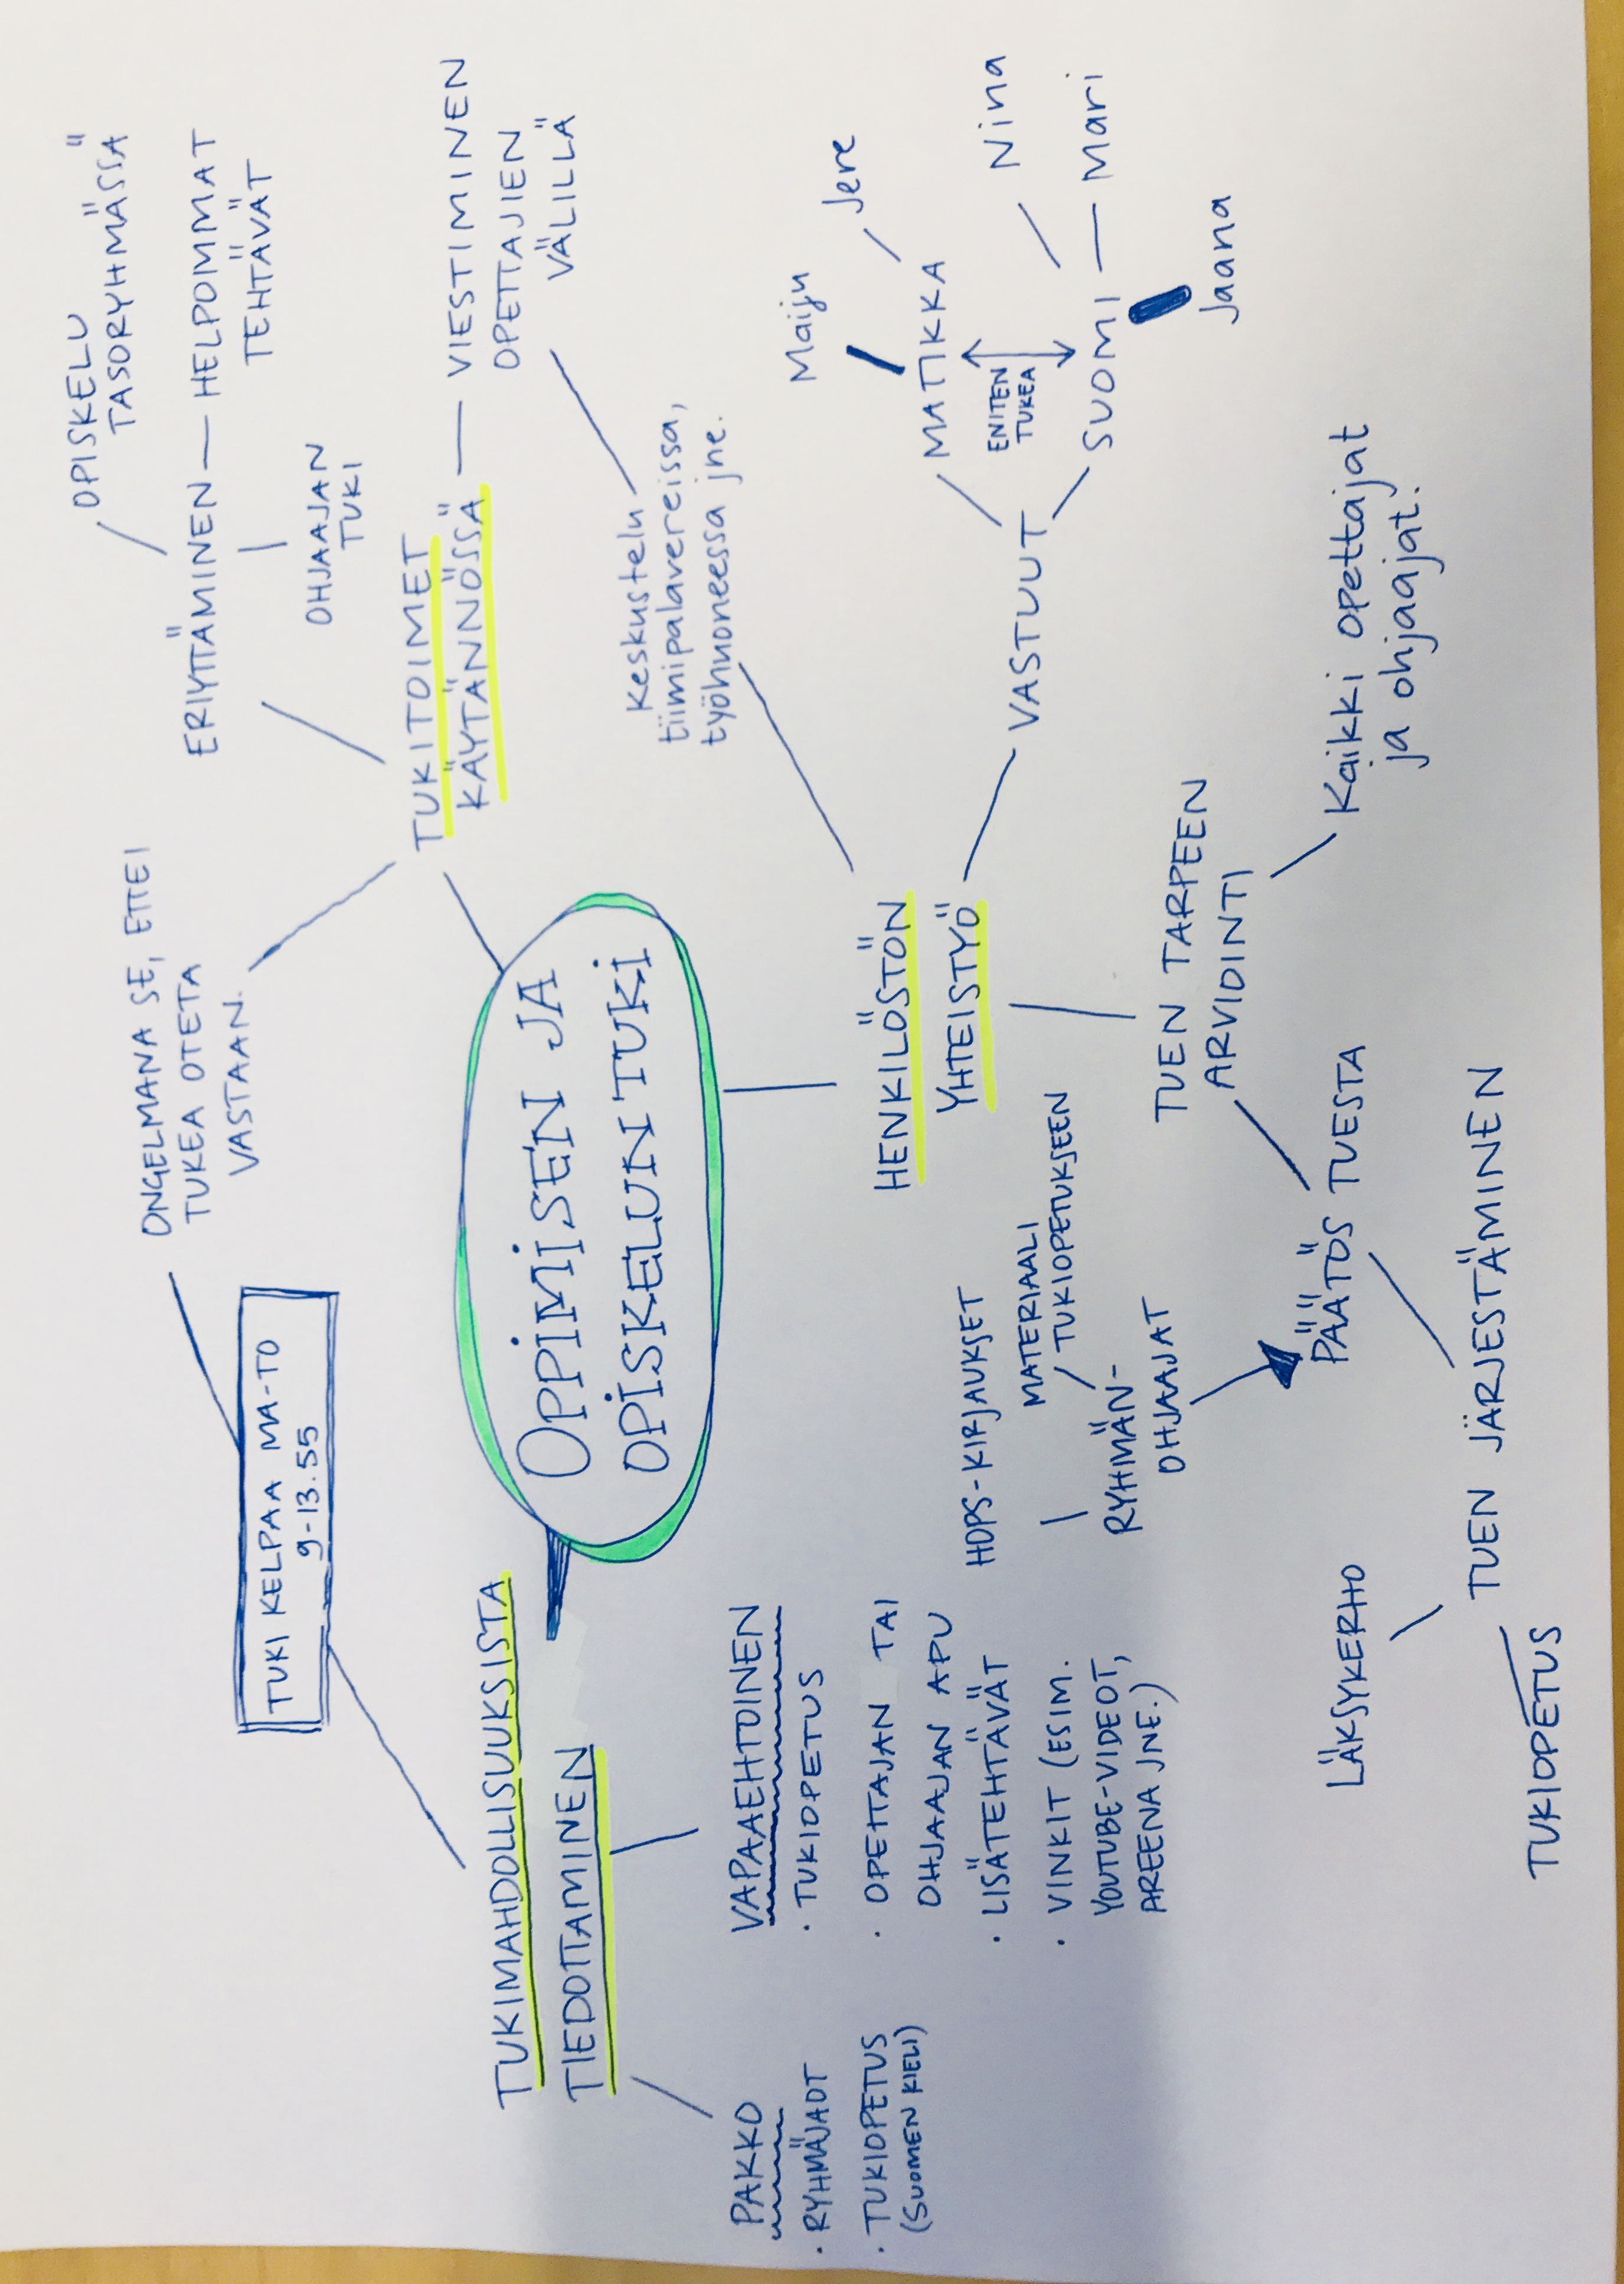 OPPIMISEN JA
OPISKELUN TUKI
TUKIMAHDOLLISUUKSISTA
TIEDOTTAMINEN
PAKKO
· RYHMÄJAOT
· TUKIOPETUS
(SUOMEN KIELI)
VAPAAEHTOINEN
· TUKIOPETUS
· OPETTAJAN TAI
OHJAAJAN APU
· LISÄTEHTÄVÄT
· VINKIT (ESIM.
YOUTUBE-VIDEOT,
AREENA JNE.)
TUKI KELPAA MA-TO
9-13.55
ONGELMANA SE, ETTEI
TUKEA OTETA
VASTAAN.
TUKITOIMET
KÄYTÄNNÖSSÄ
ERIYTTÄMINEN — HELPOMMAT
TEHTÄVÄT
OPISKELU
TASORYHMÄSSÄ
OHJAAJAN
TUKI
VIESTIMINEN
OPETTAJIEN
VÄLILLÄ
Keskustelu
tiimipalavereissa,
työhuoneessa jne.
HENKILÖSTÖN
YHTEISTYÖ
VASTUUT
MATIKKA
Maiju
Jere
ENITEN
TUKEA
SUOMI — Mari
Nina
Jaana
TUEN TARPEEN
ARVIOINTI
Kaikki opettajat
ja ohjaajat.
PÄÄTÖS TUESTA
RYHMÄN-
OHJAAJAT
HOPS-KIRJAUKSET
MATERIAALI
TUKIOPETUKSEEN
TUEN JÄRJESTÄMINEN
LÄKSYKERHO
TUKIOPETUS